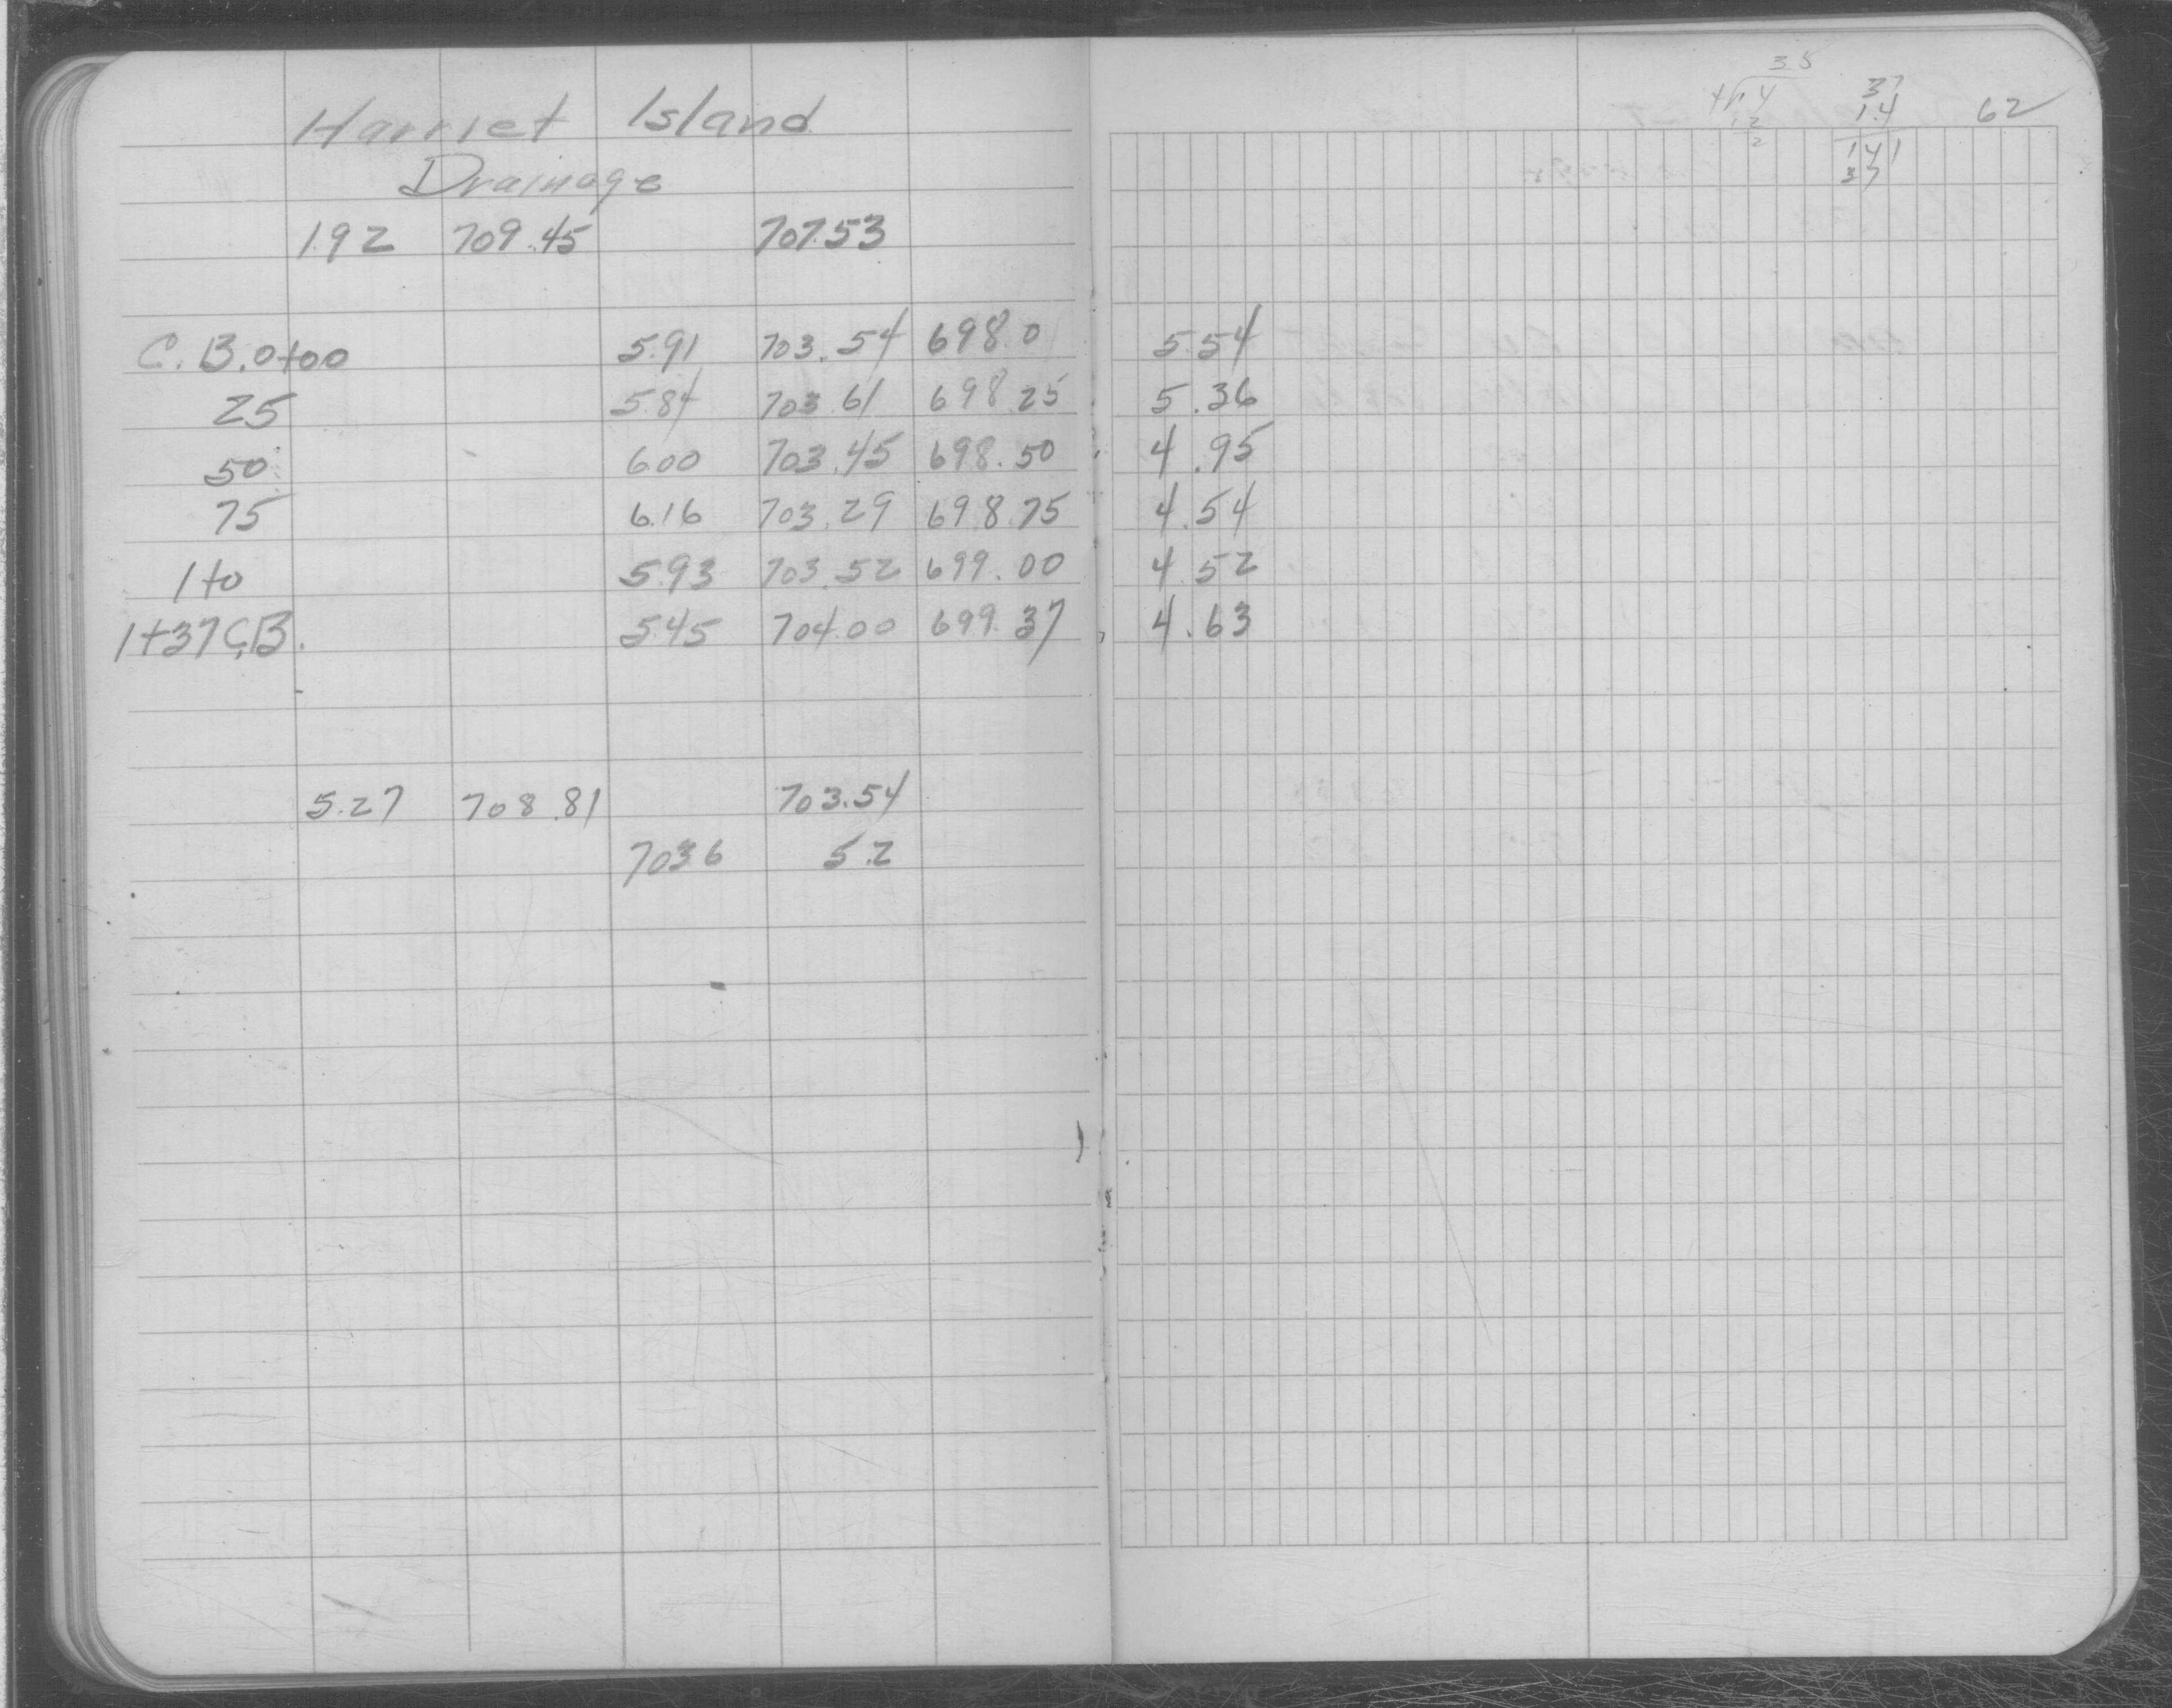 Harriet Island
Drainage
1.92 709.45 707.53
C.B. 0+00 5.91 703.54 698.0 5.54
25 5.84 703.61 698.25 5.36
50 6.00 703.45 698.50 4.95
75 6.16 703.29 698.75 4.54
1+0 5.93 703.52 699.00 4.52
1+37 C.B. 5.45 704.00 699.37 4.63
5.27 708.81 703.54
703.6 5.2
35
1.4
12
2
37
1.4
141
37
62